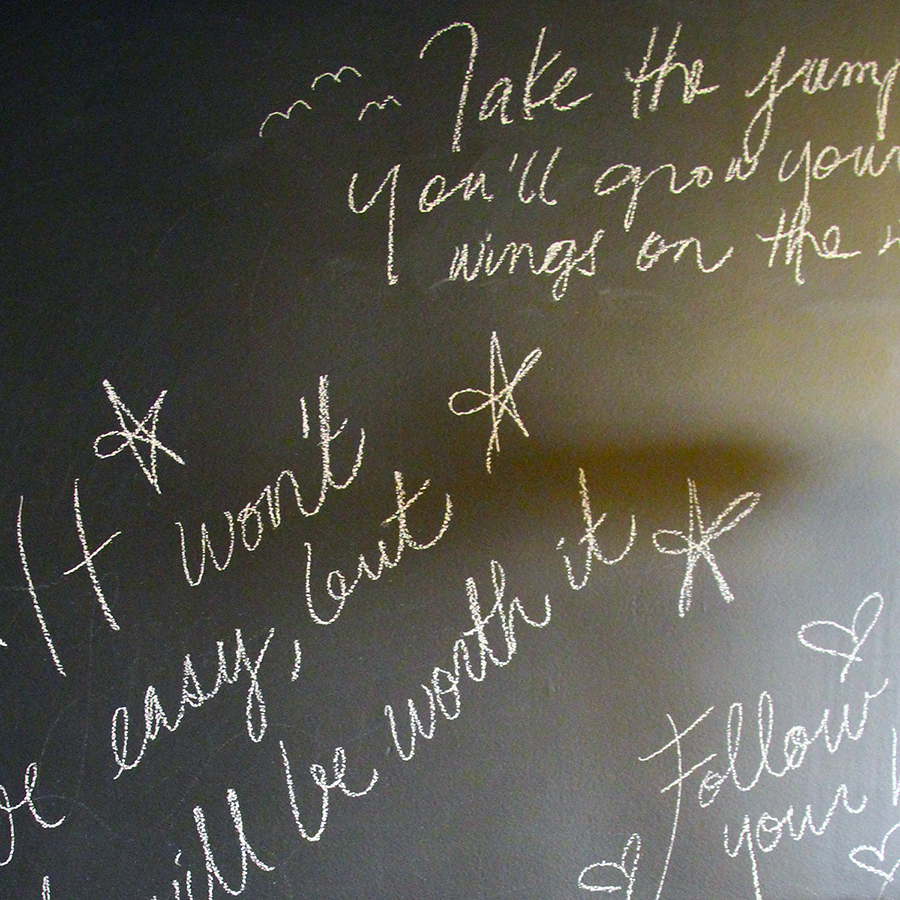 Take the jump
You'll grow your
wings on the
It won't
be easy, but
will be worth it
Follow
your